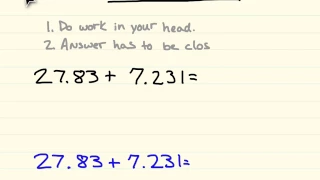 1. Do work in your head.
2. Answer has to be clos
27.83 + 7.231=
27.83 + 7.231=